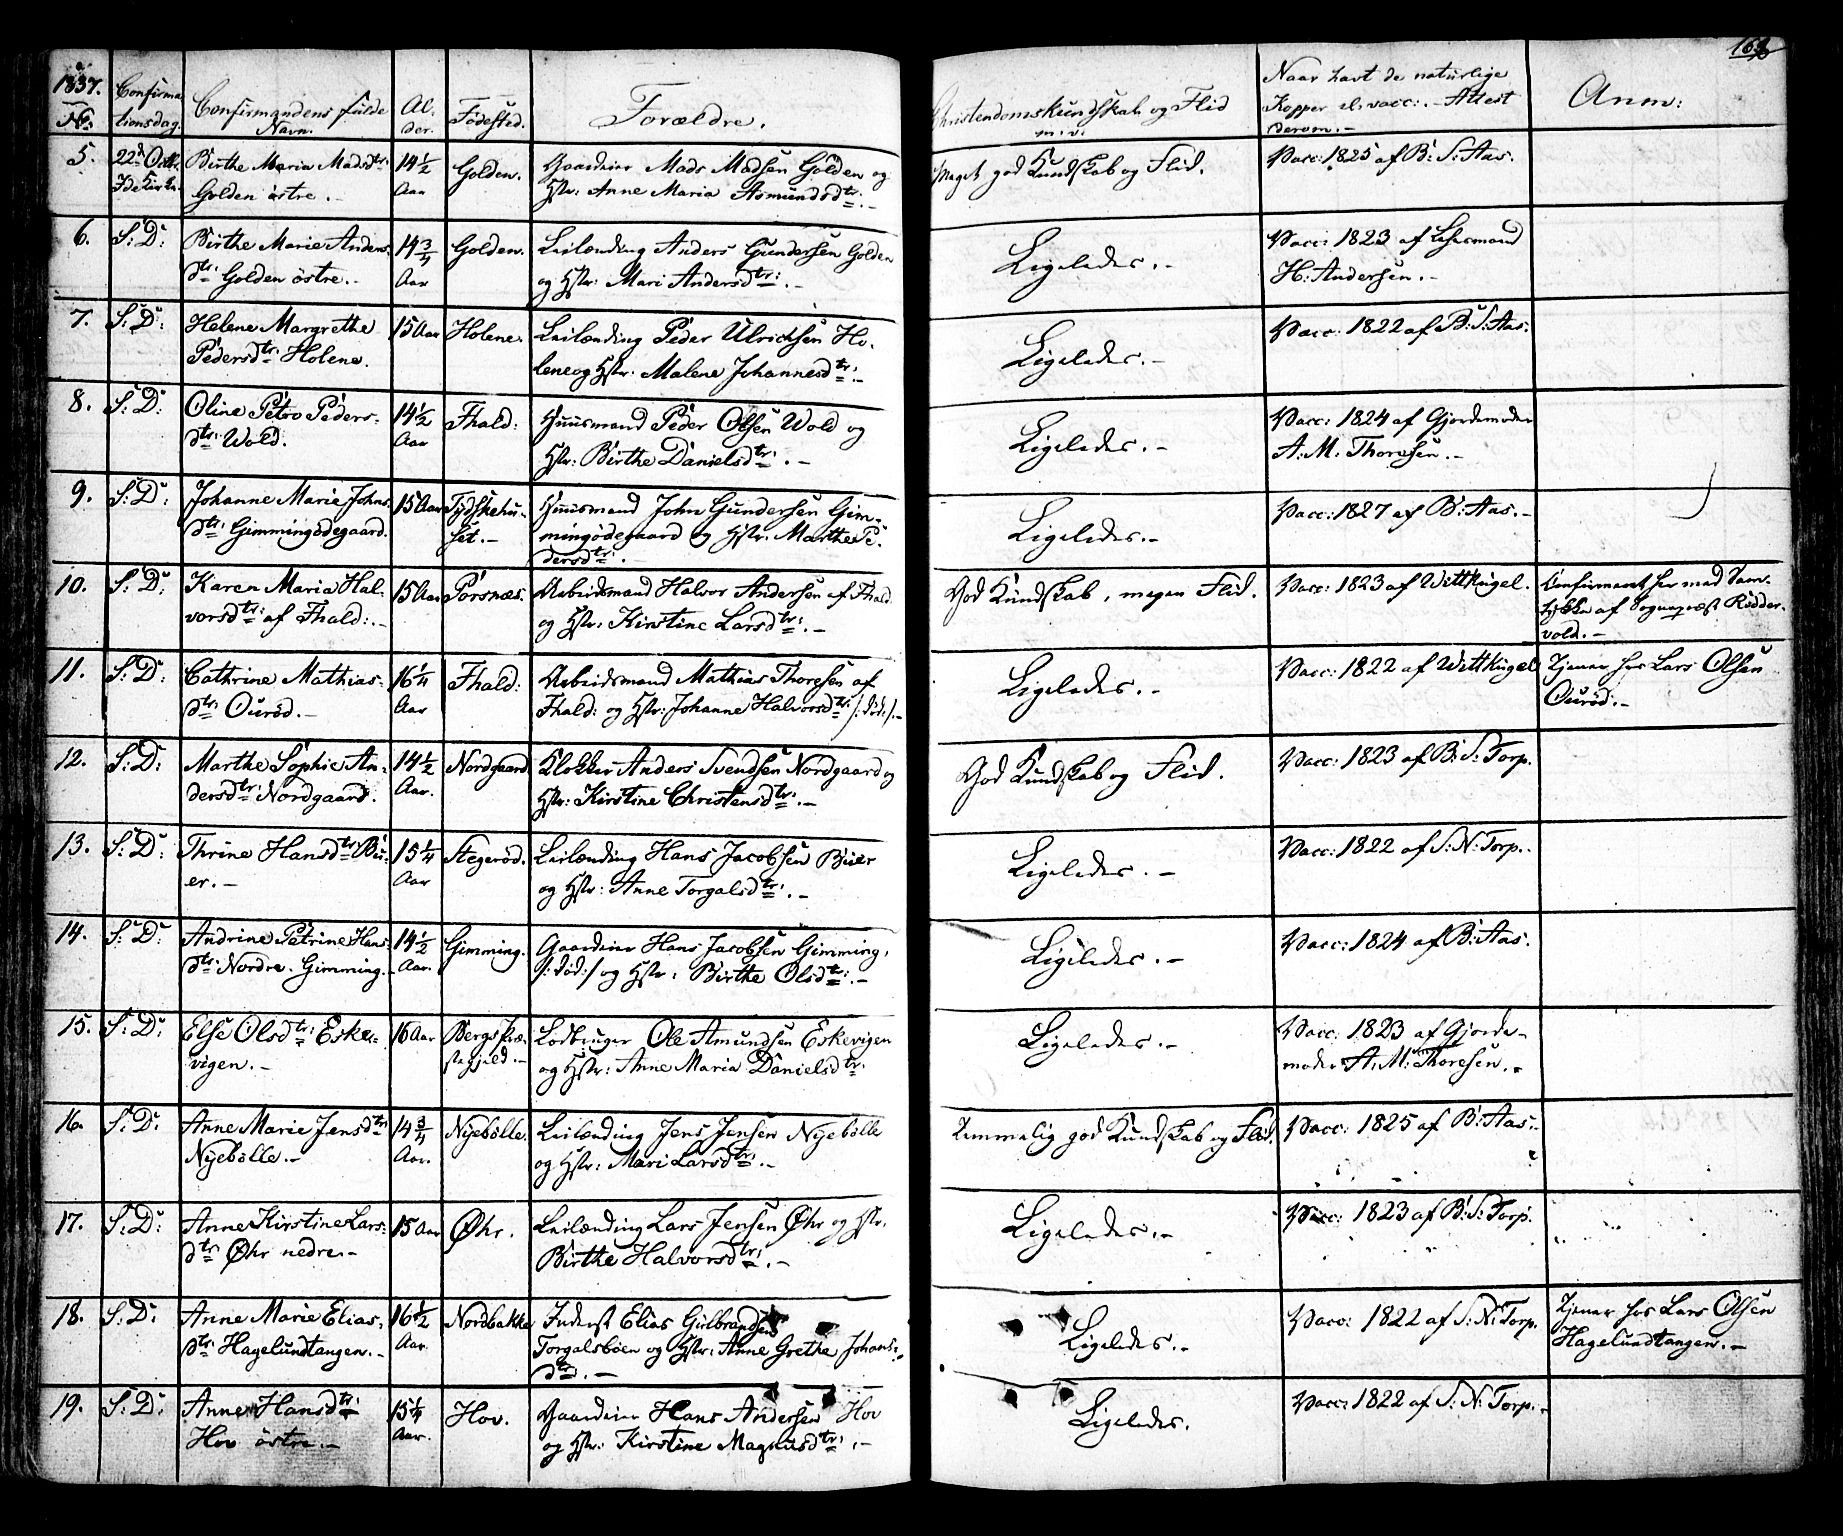 1837.
No:
Confirma
tionsdag.
Confirmandens fulde
Navn.
Al-
der.
Fødested.
Forældre.
Christendomskundskab og Flid
m. v.
Naar havt de naturlige
Kopper el. vacc: - Attest
derom. -
Anm:
5. 22d Octr. Birthe Maria Madsdtr: 14½ Golden. Gaardeier Mads Madsen Golden og Meget god Kundskab og Flid. Vacc: 1825 af B: S: Aas.
Ide Kirke. Golden østre. - Aar Hstr: Anne Maria Asmundsdtr: . -
6. S: D: Birthe Marie Anders- 14¾ Golden. Leilænding Anders Gundersen Golden Ligeledes. - Vacc: 1823 af Lehnsmand
dtr: Golden østre. - Aar og Hstr: Mari Andersdtr: . - H: Andersen. -
7. S: D: Helene Margrethe 15 Aar Holene. Leilænding Peder Ulrichsen Ho- Ligeledes. - Vacc: 1822 af B: S: Aas:
Pedersdtr: Holene. lene og Hstr: Malene Johannesdtr: . -
8. S: D: Oline Petro Peders- 14½ Fhald: Huusmand Peder Olsen Wold og Ligeledes. - Vacc: 1824 af Gjordemoder
dtr: Wold. Aar Hstr: Birthe Danielsdtr: . - A. M. Thoresen. -
9. S: D: Johanne Marie Johns- 15 Aar Tydskehu- Huusmand John Gundersen Gim- Ligeledes. - Vacc: 1827 af B: Aas. -
dtr: Gimmingødegaard. set. - mingødegaard og Hstr: Marthe Pe-
dersdtr: . -
10. S: D: Karen Maria Hal- 15 Aar Porsnæs. Arbeidsmand Halvor Andersen af Fhald. God Kundskab, megen Flid. Vacc: 1823 af Wittkugel. Confirmeret her med Sam-
vorsdtr: af Fhald: - og Hstr: Kirstine Larsdtr: . - tykke af Sognepræst Rødder-
vold. -
11. S: D: Cathrine Mathias- 16¼ Fhald: Arbeidsmand Mathias Thoresen af Ligeledes. - Vacc: 1822 af Wittkugel Tjener hos Lars Olsen
dtr: Ourød. - Aar Fhald: og Hstr: Johanne Halvorsdtr: /: død :/. - Ourød. -
12. S: D: Marthe Sophie An- 14½ Nordgaard Klokker Anders Svendsen Nordgaard og God Kundskab og Flid. Vacc: 1823 af B: S: Torp.
dersdtr: Nordgaard. Aar. Hstr: Kirstine Christensdtr: . -
13. S: D: Thrine Hansdtr: Bu- 15¼ Stegerød. Leilænding Hans Jacobsen Buer Ligeledes. - Vacc: 1822 af S: N: Torp. -
er. - Aar og Hstr: Anne Torgalsdtr: . -
14. S: D: Andrine Petrine Hans- 14½ Gimming. Gaardeier Hans Jacobsen Gimming, Ligeledes. - Vacc: 1824 af B: Aas.
dtr: Nordre. Gimming. Aar. /: død :/ og Hstr: Birthe Olsdtr: . -
15. S: D: Else Olsdtr: Eske- 16 Aar Bergs Præ- Lodbruger Ole Amundsen Eskevigen Ligeledes. - Vacc: 1823 af Gjorde-
vigen. - stegjeld. - og Hstr: Anne Maria Danielsdtr: moder A. M: Thoresen. -
16. S: D: Anne Marie Jensdtr: 14¾ Nyebølle. Leilænding Jens Jensen Nyebølle Temmelig god Kundskab og Flid. Vacc: 1825 af B: Aas: -
Nyebølle. - Aar. og Hstr: Mari Larsdtr: . -
17. S: D: Anne Kirstine Lars- 15 Aar Øhr. Leilænding Lars Jensen Øhr og Hstr: Ligeledes. - Vacc: 1823 af B: S: Torp.
dtr: Øhr nedre. - Birthe Halvorsdtr: . -
18. S: D: Anne Marie Elias- 16½ Nordbakke Inderst Elias Gulbrandsen Ligeledes. - Vacc: 1822 af S: N: Torp. Tjener hos Lars Olsen
dtr: Hagelundtangen. - Aar. Torgalsbøen og Hstr: Anne Grethe Johans- Hagelundtangen. -
dtr. -
19. S: D: Anne Hansdtr: 15¼ Hov. Gaardeier Hans Andersen Hov Ligeledes. Vacc: 1822 af S: N: Torp. -
Hov østre. - Aar. og Hstr: Kirstine Magnusdtr: . -